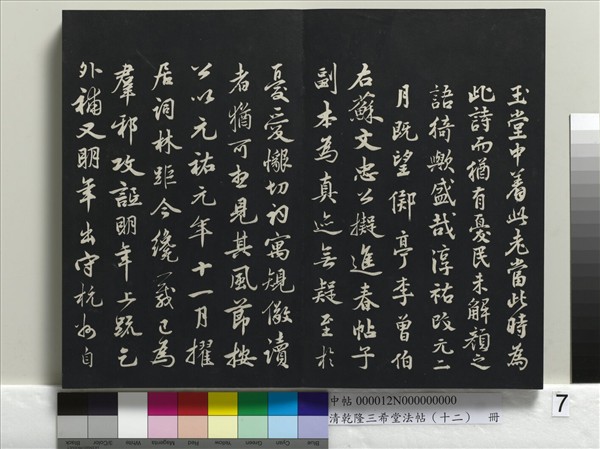 玉堂中着此老當此時為
此詩而猶有憂民未解顏之
語猗歟盛哉淳祐改元二
月既望鄮亭李曾伯
右蘇文忠公擬進春帖子
副本為真迹無疑至於
憂愛懇切初寓規儆讀
者猶可想見其風節按
公以元祐元年十一月擢
居詞林距今纔一考已為
羣邪攻詆明年上疏乞
外補又明年出守杭州自
中帖 000012N000000000
清乾隆三希堂法帖（十二） 冊
7
Blue
Cyan
Green
Yellow
Red
Magenta
White
3/Color
Black